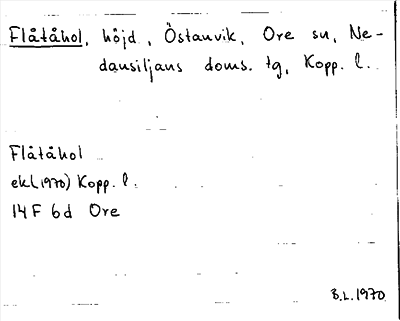 Flåtåhol, höjd, Östanvik, Ore sn, Ne-
dansiljans doms. tg, Kopp. l.
Flåtåhol
ekl(1970) Kopp. l.
14 F 6d Ore
B.L. 1970